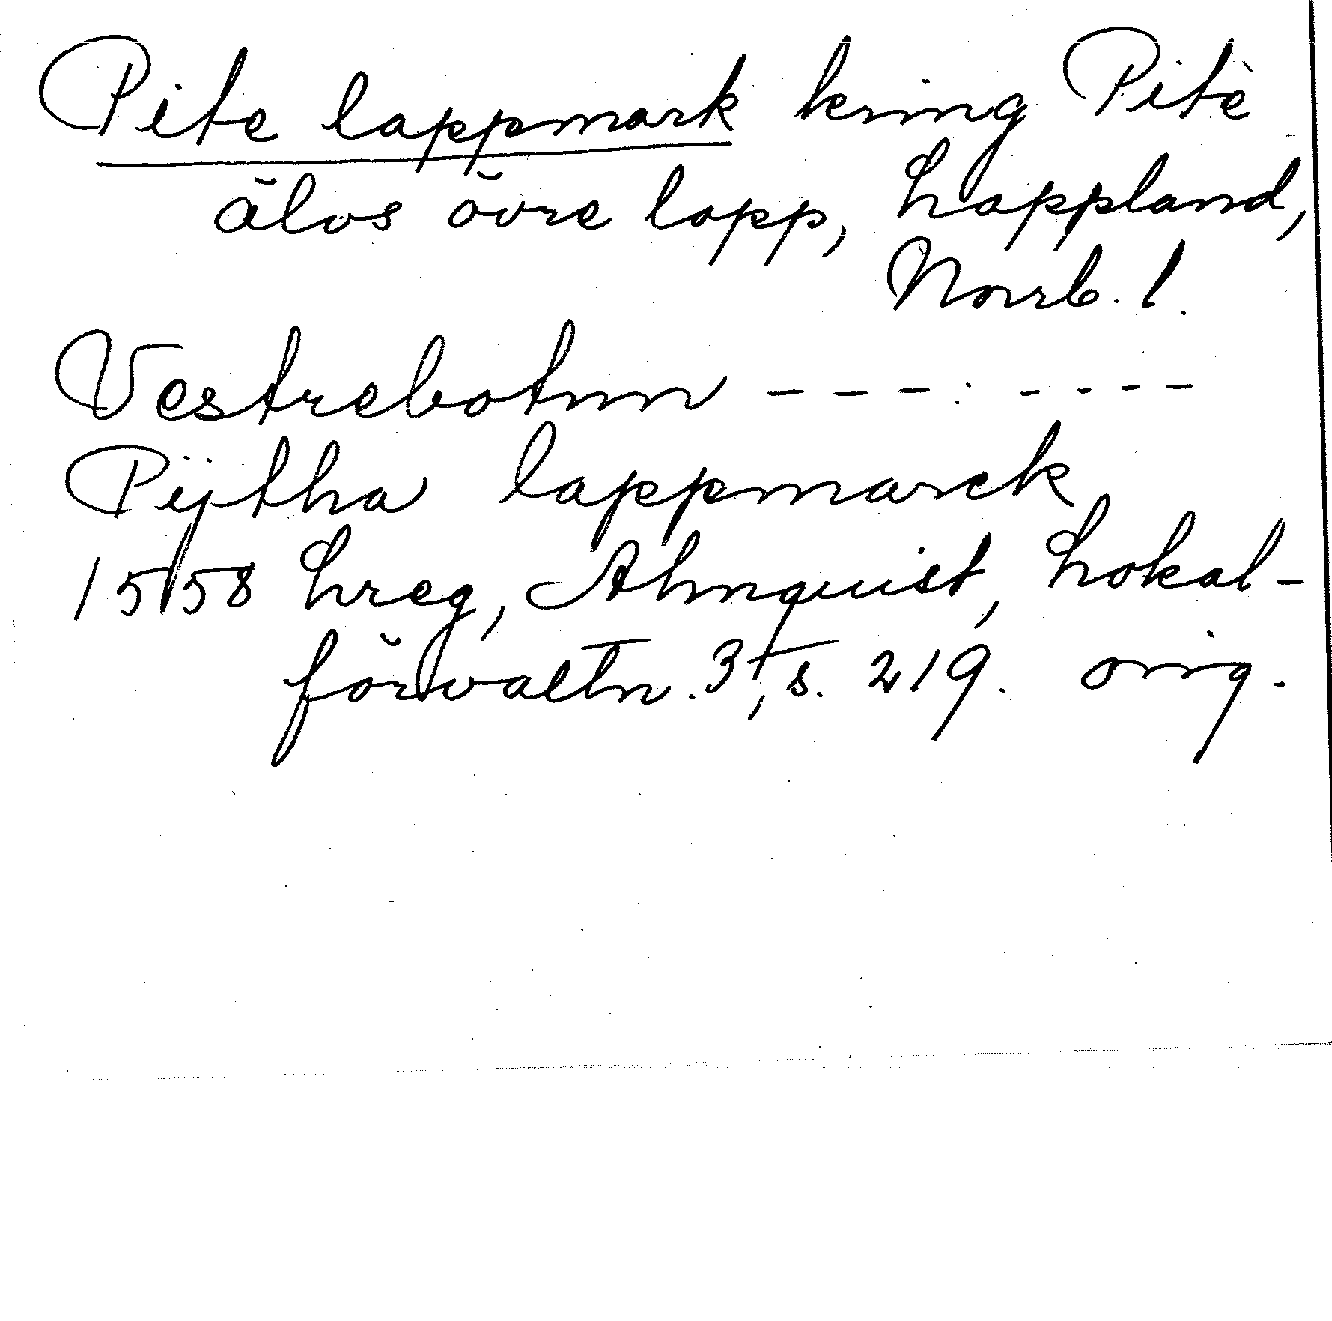 Pite lappmark kring Pite
älvs övre lopp, Lappland,
Norrb. l.
Vestrebotnn - - - . - - - -
Pijtha lappmarck
1558 hreg, Almquist, Lokal-
förvaltn. 3, s. 219. orig.